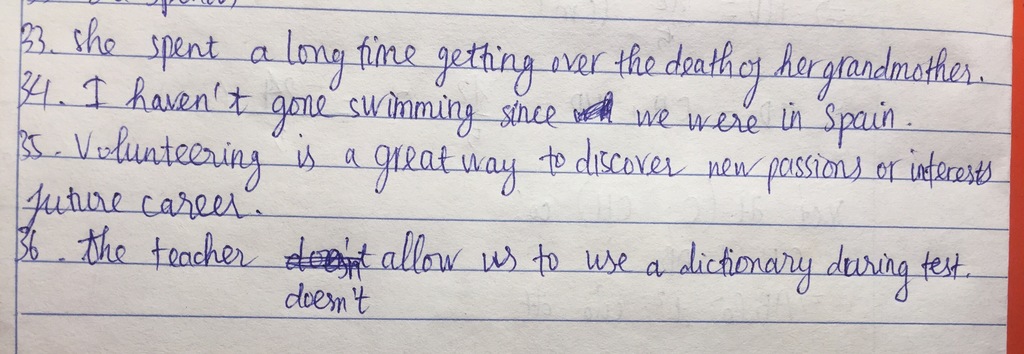 33. she spent a long time getting over the death of her grandmother.
34. I haven't gone swimming since we were in Spain.
35. Volunteering is a great way to discover new passions or interests
future career.
36. the teacher allow us to use a dictionary during test.
doesn't